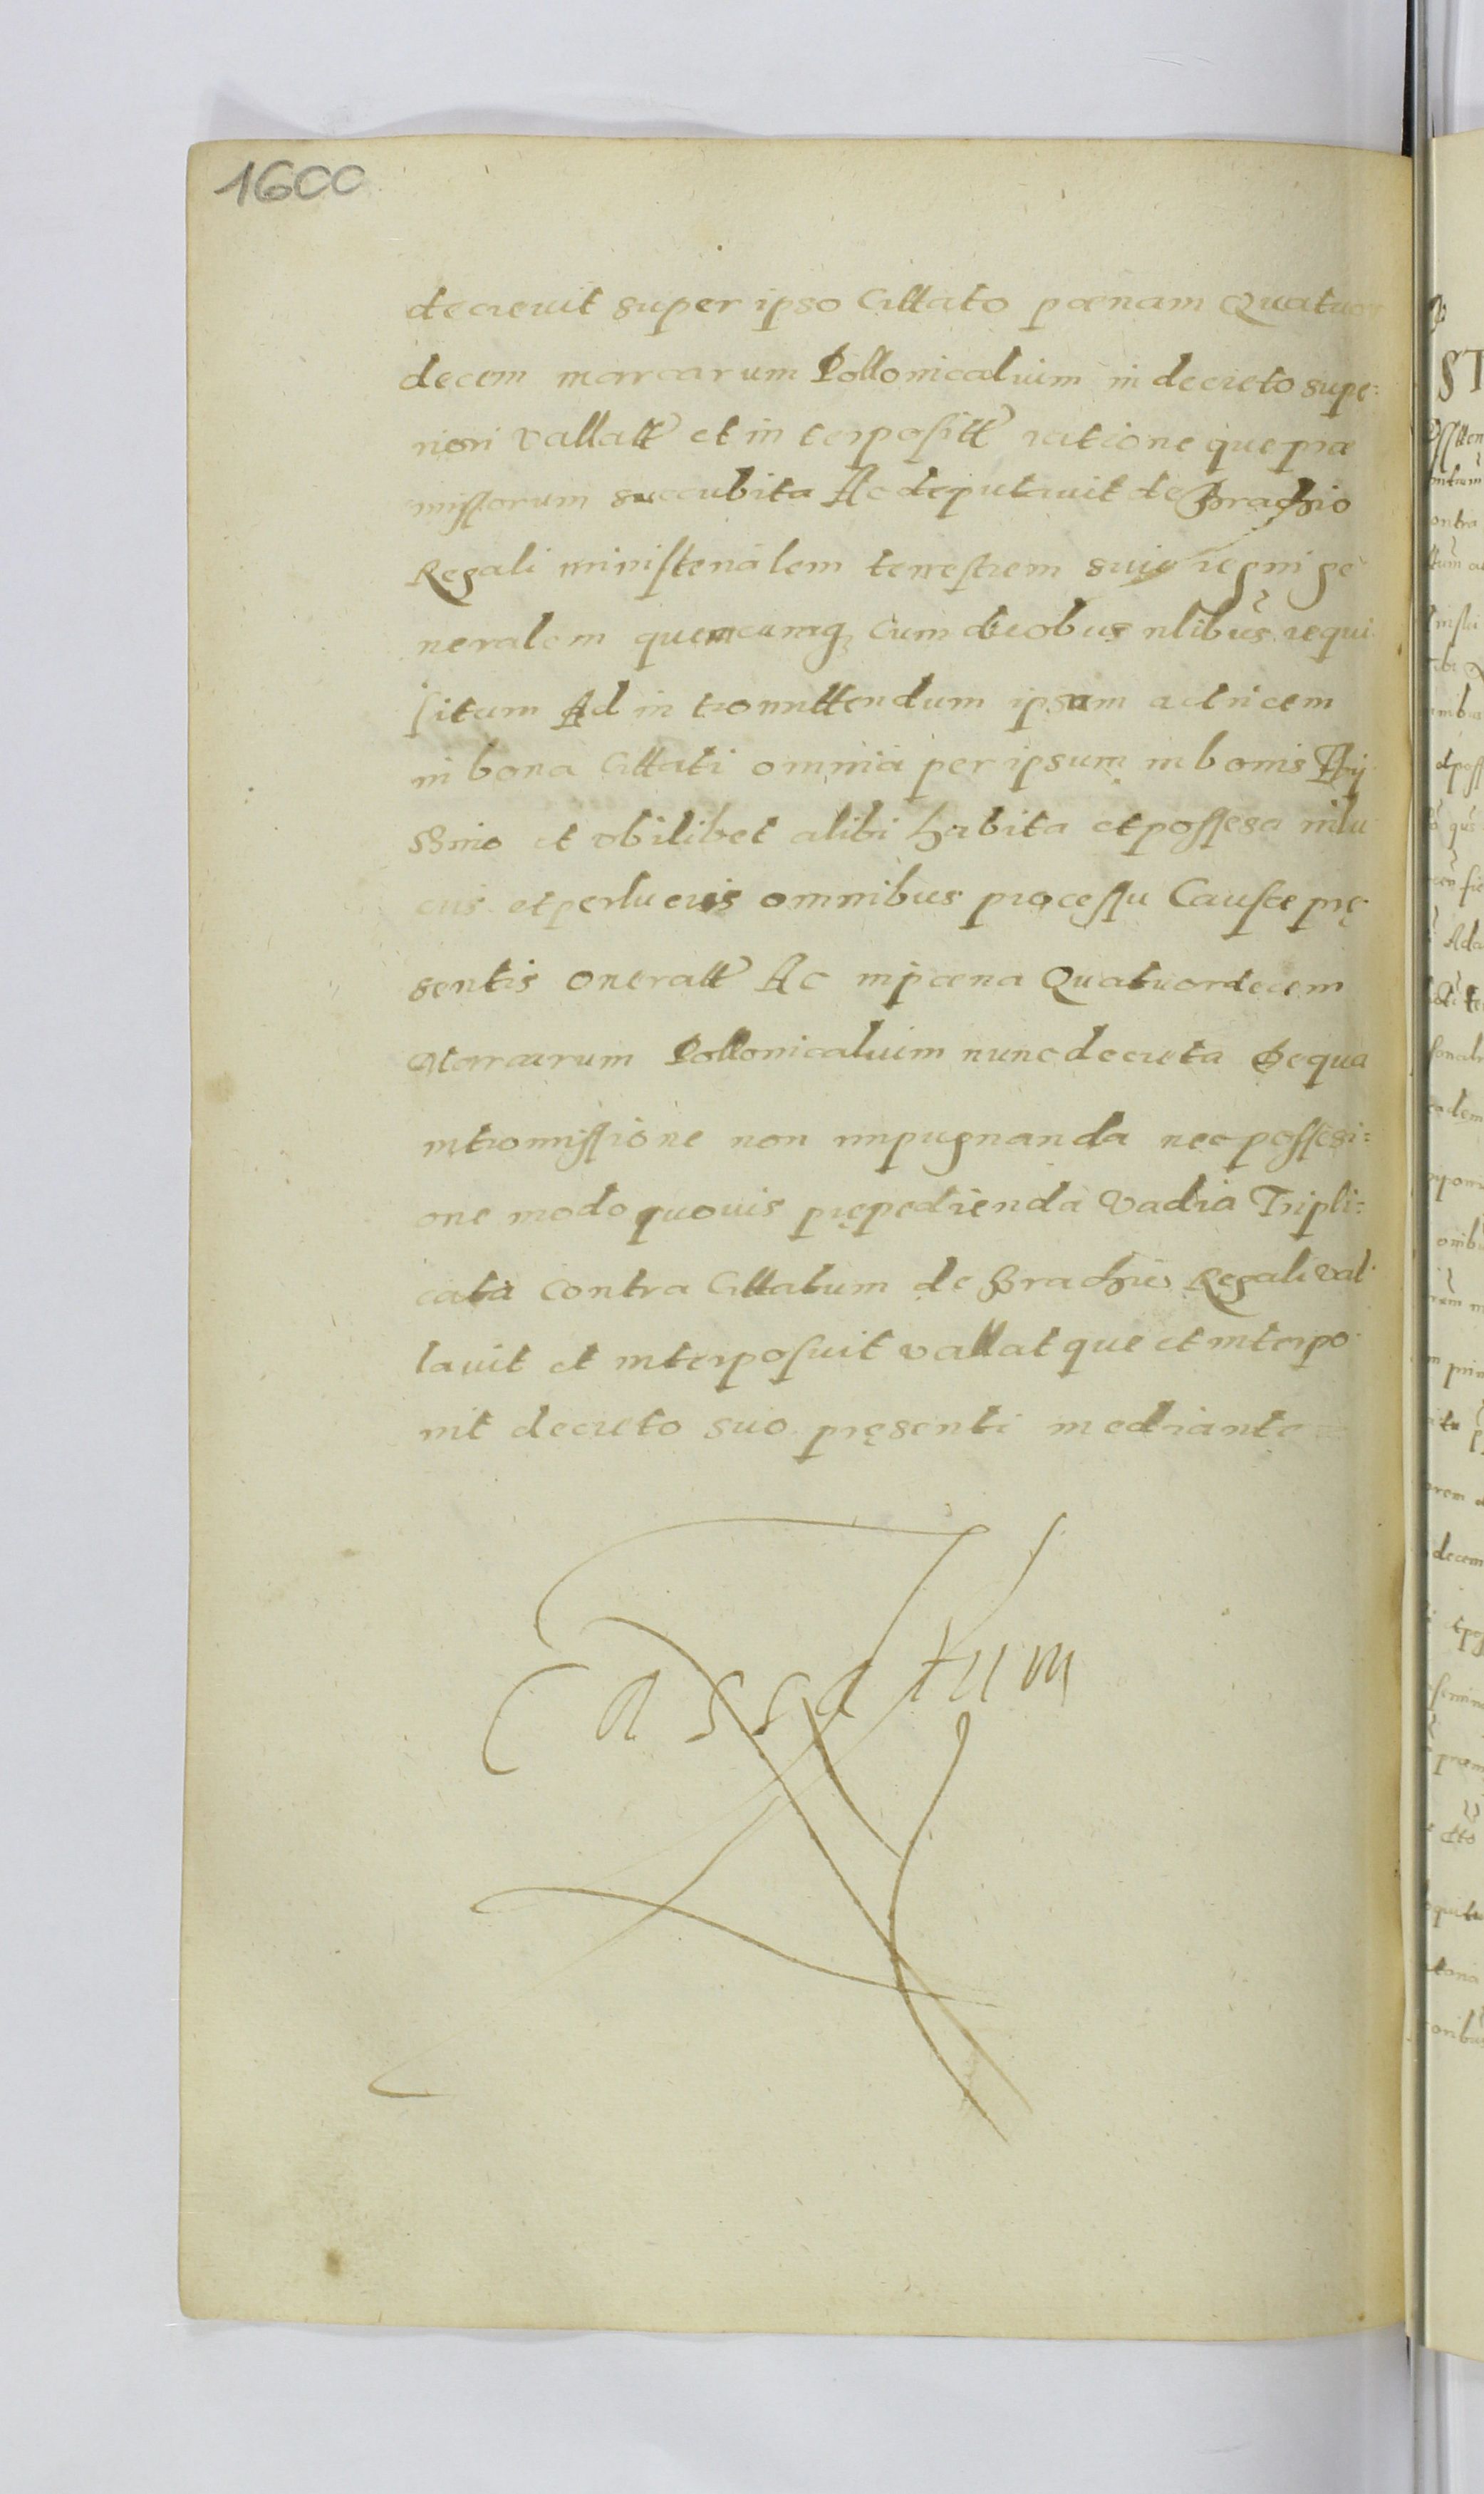 1600
decreuit super ipso Cittato pœnam Quatuor
decem marcarum Pollonicalium in decreto supe:
riori vallatt et in terpositt ratione que præ
missorum succubita Ac deputauit de Brachio
Regali ministerialem terrestrem sui regni ge
neralem quemcumq cum duobus nlibus requi
situm Ad in tromittendum ipsam actricem
in bona Cittati omnia per ipsum in bonis
et vbilibet alibi habita et possesa inlu
cris et perlucris omnibus processu Causæ prę
sentis oneratt Ac inpœna Quatuordecem
Marcarum Pollonicalium nunc decreta De qua
intromissione non impugnanda nec possesi=
one modo quouis prępedienda Vadia Tripli=
cata Contra Cittatum de Brachio Regali val
lauit et interposuit vallat que et interpo
nit decreto suo pręsenti mediante
Cassatum